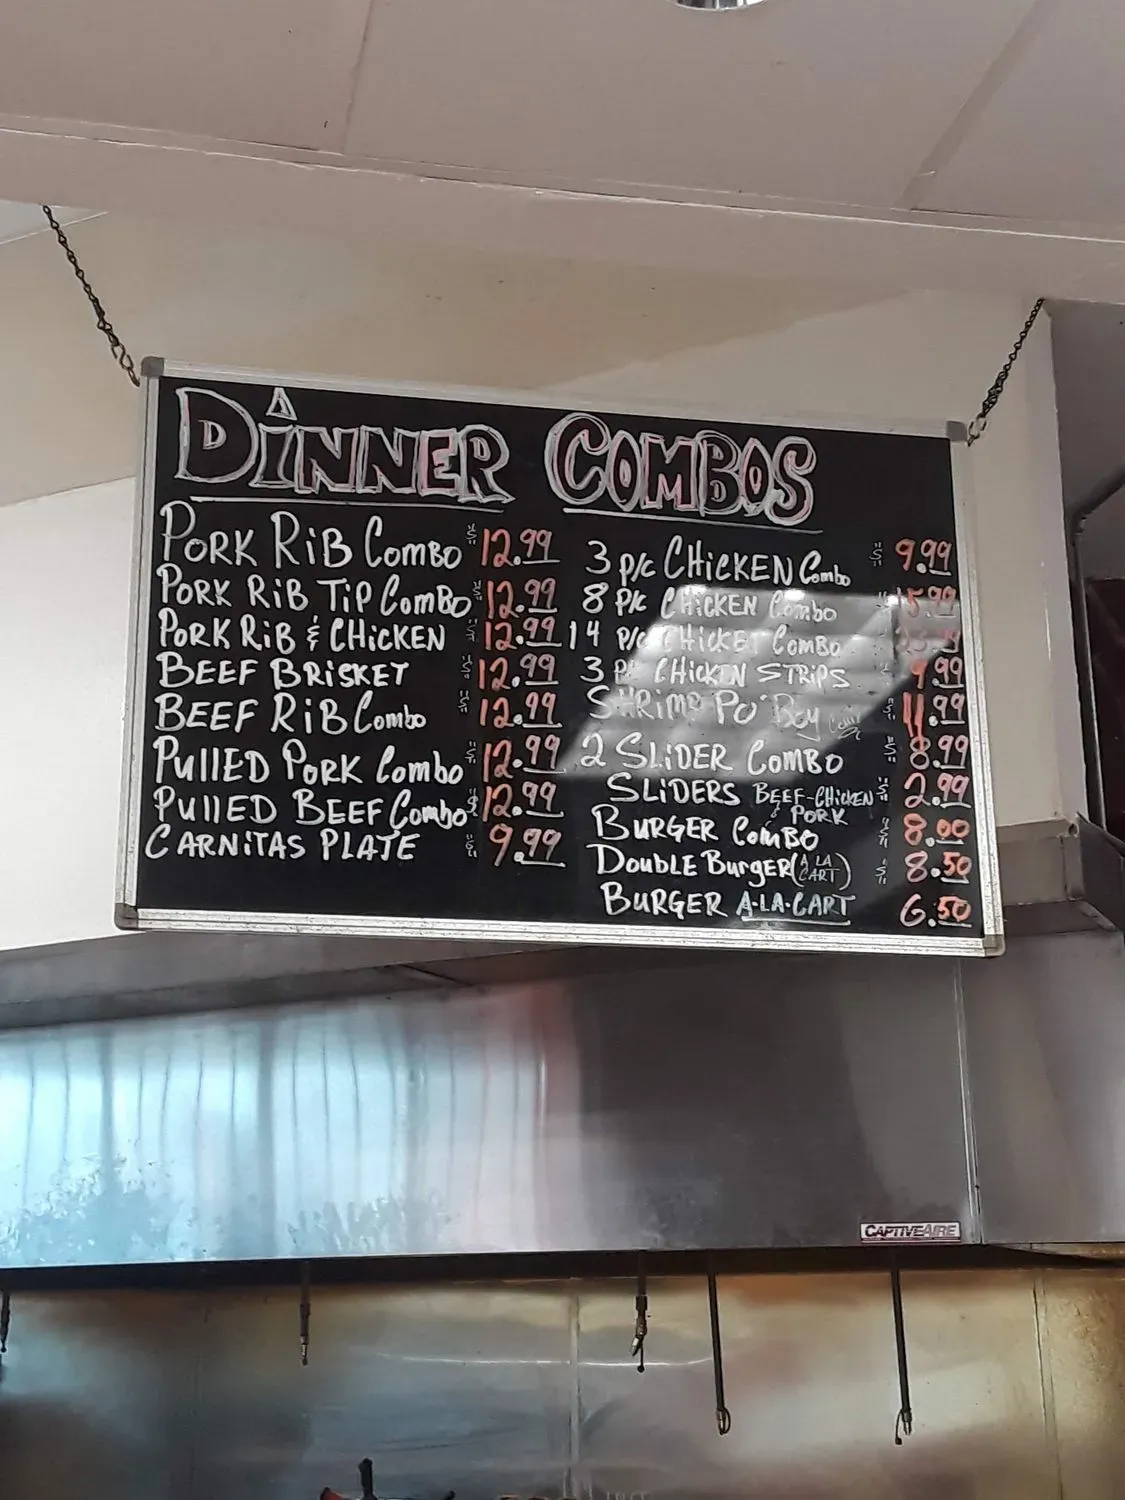 DINNER COMBOS
PORK RIB COMBO $12.99
PORK RIB TIP COMBO $12.99
PORK RIB & CHICKEN $12.99
BEEF BRISKET $12.99
BEEF RIB Combo $12.99
PULLED PORK Combo $12.99
PULLED BEEF Combo $12.99
CARNITAS PLATE $9.99
3 P/C CHICKEN Combo $9.99
8 P/C CHICKEN Combo 15.99
14 P/C CHICKET COMBO
3 P/C CHICKEN STRIPS $9.99
SHRIMP PO'BOY $11.99
2 SLIDER COMBO $8.99
SLIDERS BEEF-CHICKEN $2.99
& PORK
BURGER COMBO $8.00
DOUBLE BURGER (A LA CART) $8.50
BURGER A-LA-CART 6.50
CAPTIVEAIRE